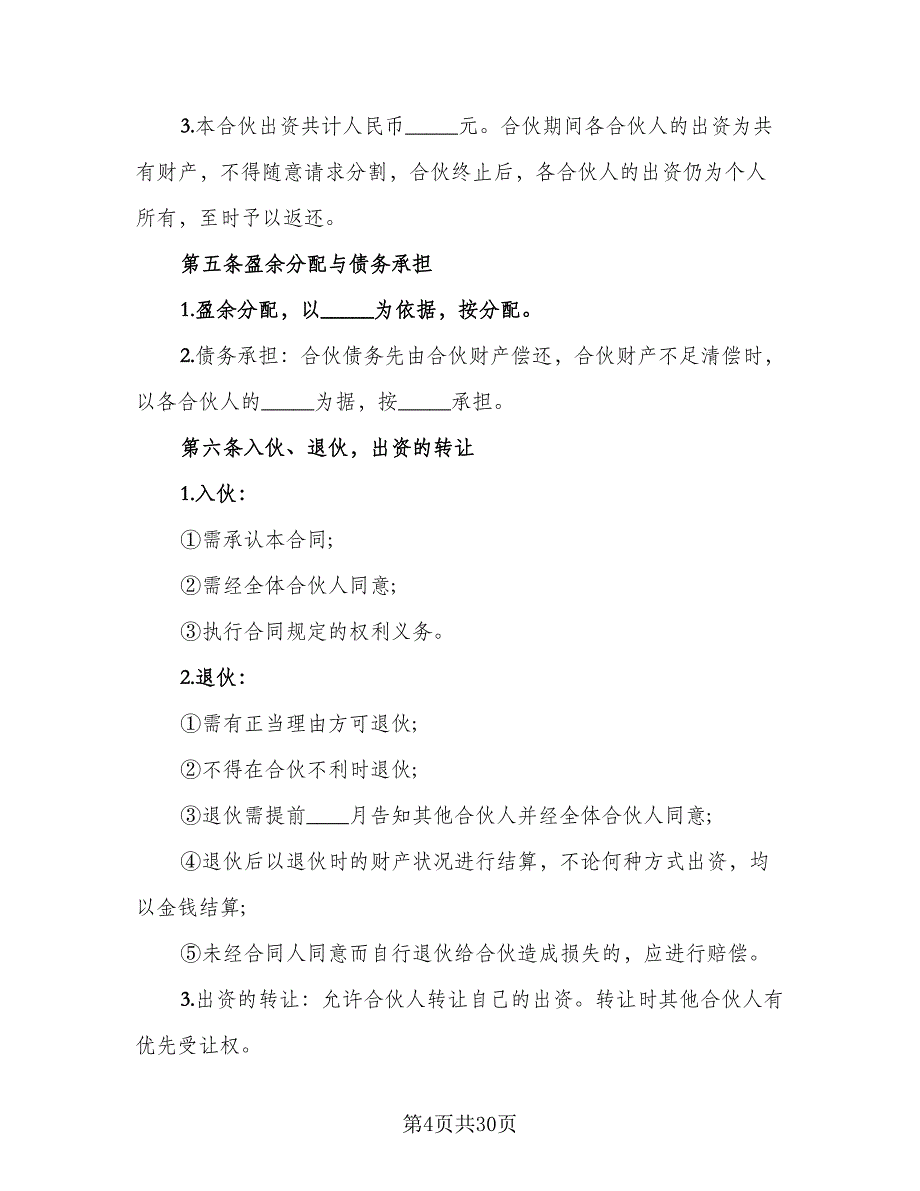 3.本合伙出资共计人民币_____元。合伙期间各合伙人的出资为共
有财产，不得随意请求分割，合伙终止后，各合伙人的出资仍为个人
所有，至时予以返还。
第五条盈余分配与债务承担
1.盈余分配，以_____为依据，按分配。
2.债务承担：合伙债务先由合伙财产偿还，合伙财产不足清偿时，
以各合伙人的_____为据，按_____承担。
第六条入伙、退伙，出资的转让
1.入伙：
①需承认本合同;
②需经全体合伙人同意;
③执行合同规定的权利义务。
2.退伙：
①需有正当理由方可退伙;
②不得在合伙不利时退伙;
③退伙需提前____月告知其他合伙人并经全体合伙人同意;
④退伙后以退伙时的财产状况进行结算，不论何种方式出资，均
以金钱结算;
⑤未经合同人同意而自行退伙给合伙造成损失的，应进行赔偿。
3.出资的转让：允许合伙人转让自己的出资。转让时其他合伙人有
优先受让权。
第4页共30页